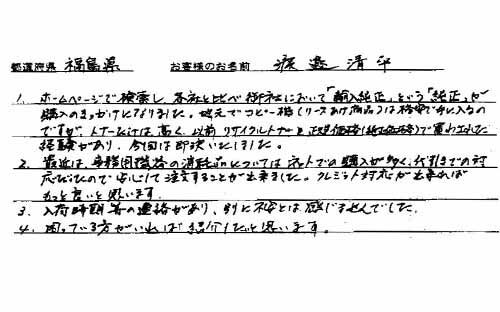 都道府県 福島県 お客様のお名前 渡邉 清平
1. ホームページで検索し、各社と比べ御社において「輸入純正」という「純正」が
購入のきっかけになりました。地元でコピー機(リースあげ商品)は格安で手に入るの
ですが、トナーだけは高く、以前リサイクルトナーを正規価格(純正価格)で買わされた
経験があり、今回は即決いたしました。
2. 最近は、事務用機器の消耗品についてはネットでの購入が多く、代引きでの対
応だったので安心して注文することが出来ました。クレジット対応が出来れば
もっと良いと思います。
3. 入荷時期等の連絡があり、別に不安とは感じませんでした。
4. 困っている方がいれば紹介したいと思います。